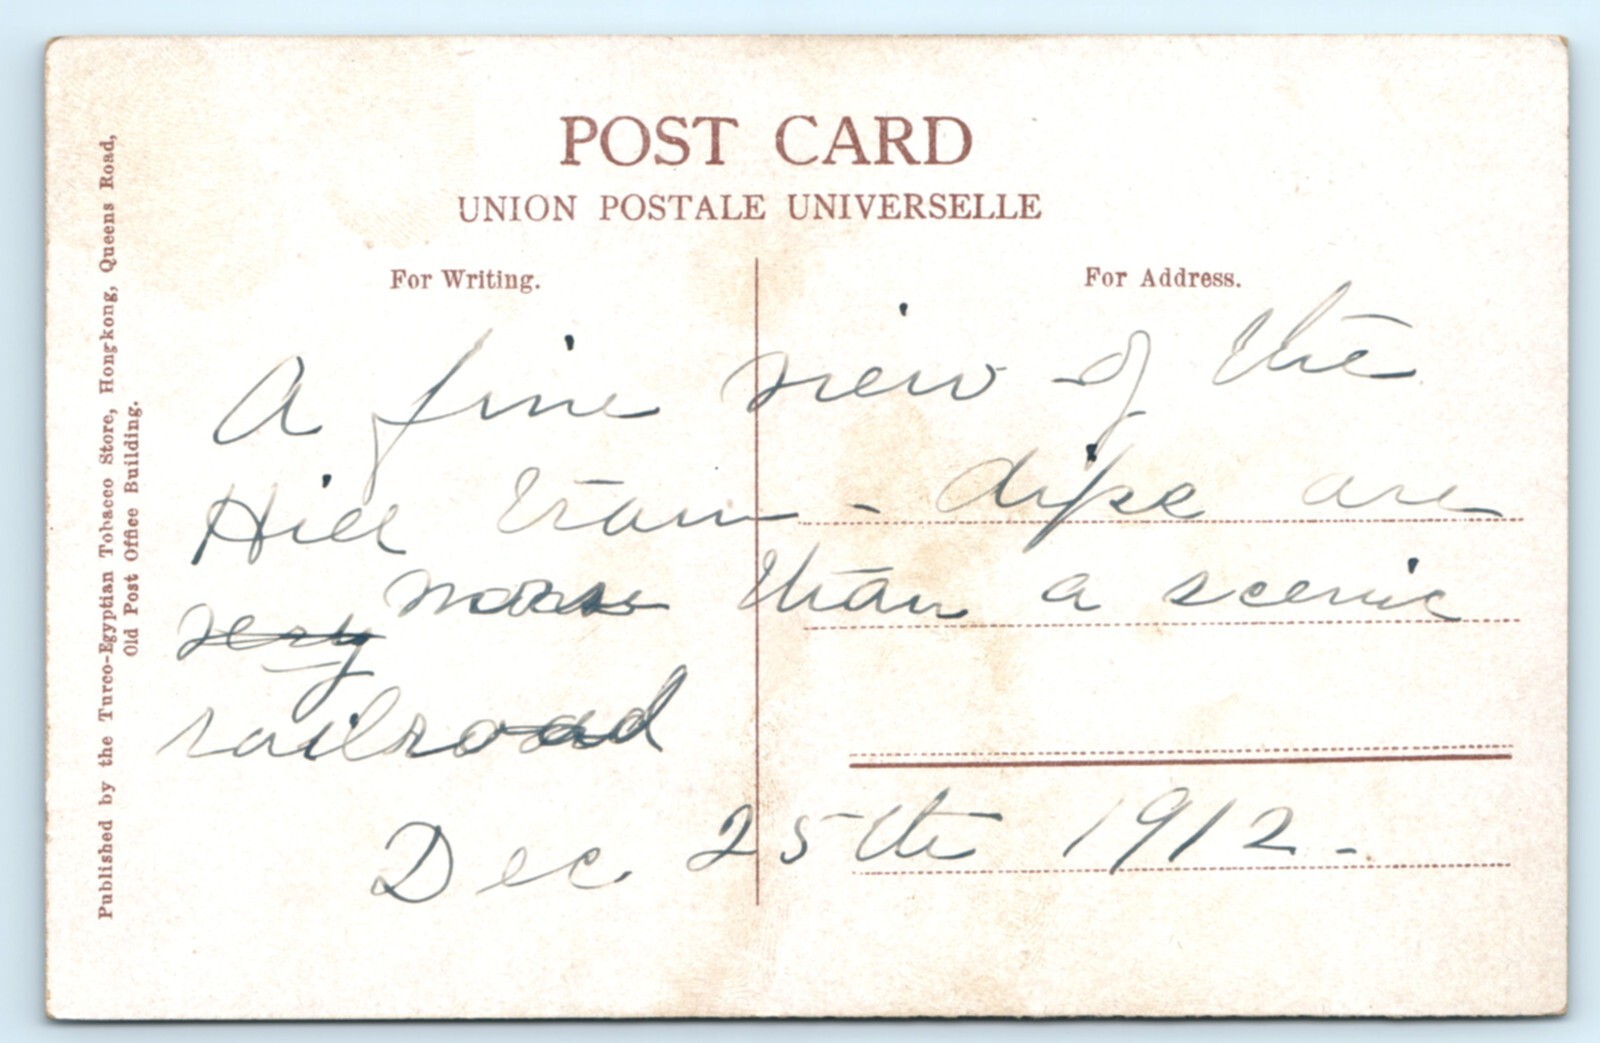 POST CARD
UNION POSTALE UNIVERSELLE
For Writing.
For Address.
A fine view of the
Hill tram - are
very more than a scenic
railroad
Dec 25th 1912 -
Published by the Turco-Egyptian Tobacco Store, Hongkong, Queens Road,
Old Post Office Building.